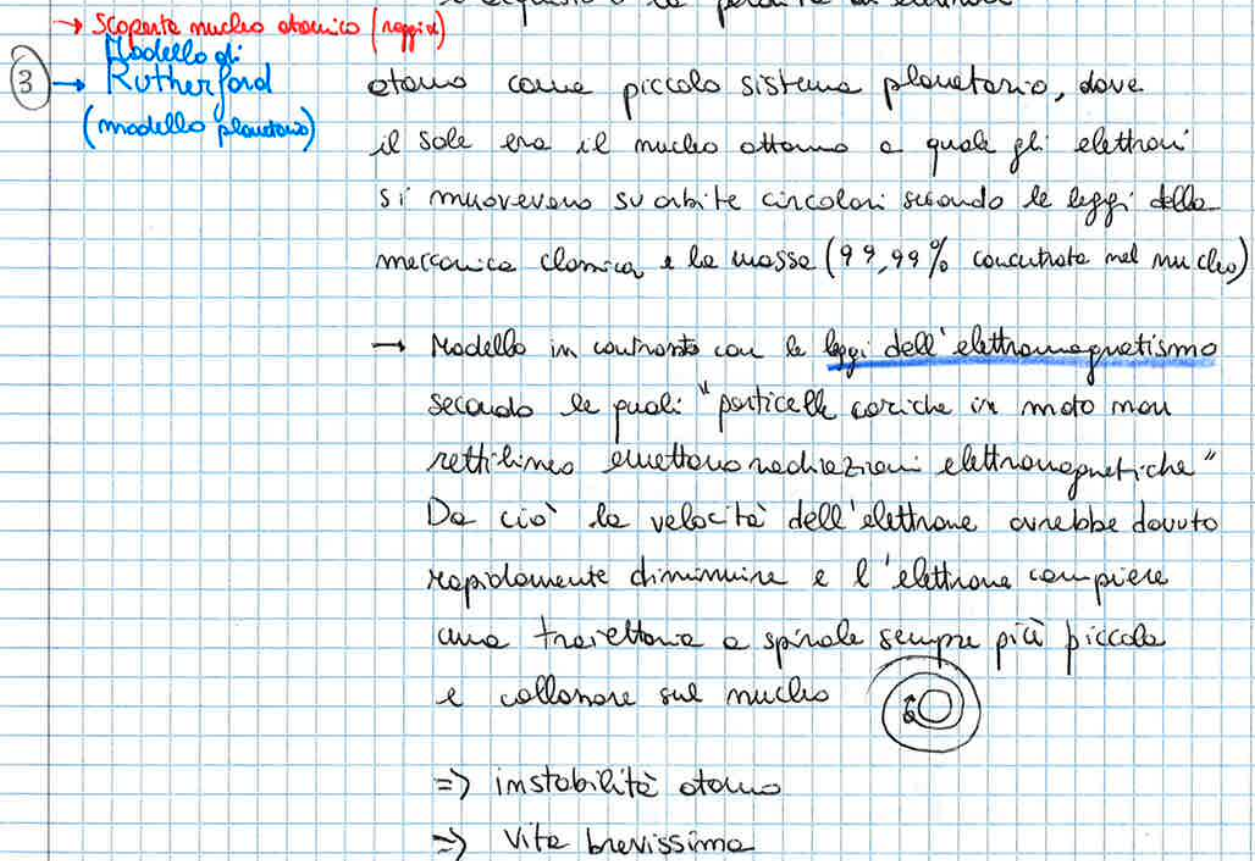 → Scoperta nucleo atomico (raggi α)
③ → Modello di
Rutherford
(modello planetario)
atomo come piccolo sistema planetario, dove
il sole era il nucleo attorno a quale gli elettroni
si muovevano su orbite circolari secondo le leggi della
meccanica classica e la massa (99,99% concentrata nel nucleo)
→ Modello in contrasto con le leggi dell'elettromagnetismo
secondo le quali "particelle cariche in moto non
rettilineo emettono radiazioni elettromagnetiche"
Da ciò la velocità dell'elettrone avrebbe dovuto
rapidamente diminuire e l'elettrone compiere
una traiettoria a spirale sempre più piccola
e collassare sul nucleo
=> instabilità atomo
=> vita brevissima